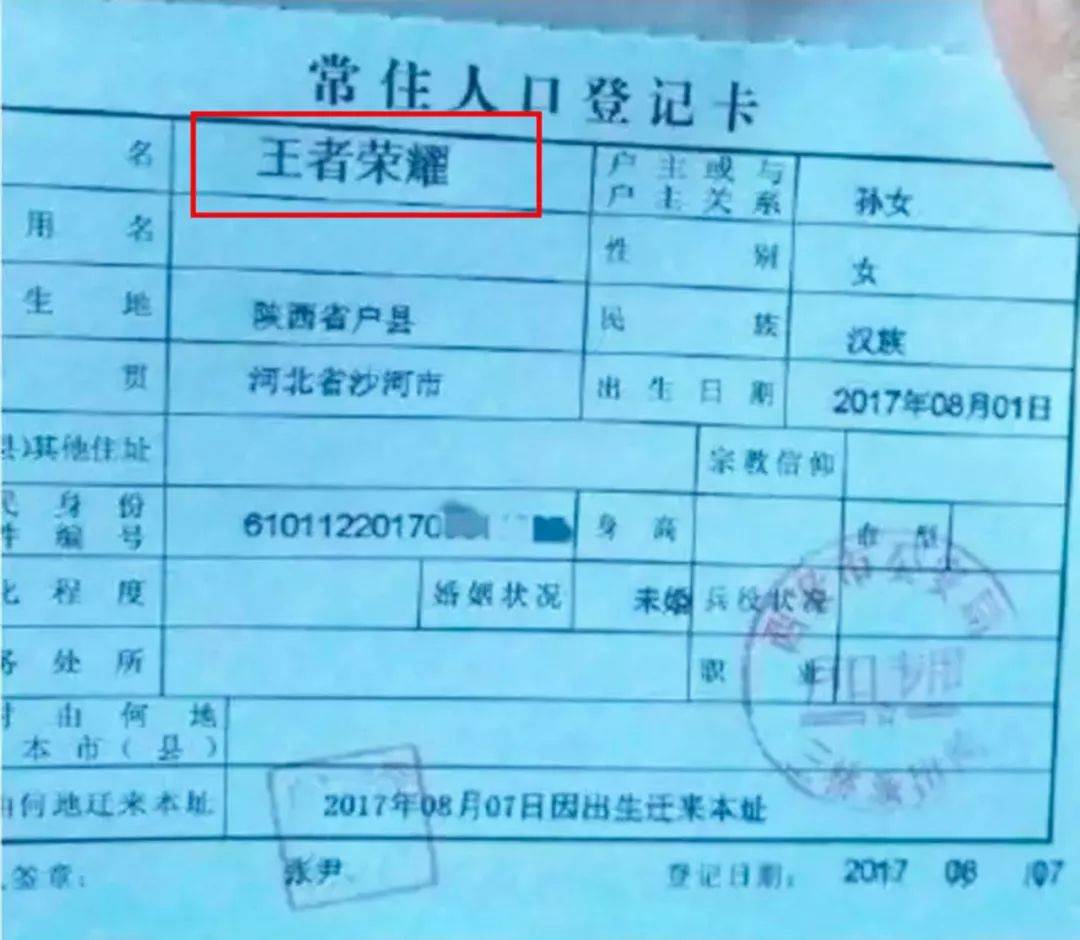 常住人口登记卡
名 王者荣耀 户主或与户主关系 孙女
用名 性别 女
生地 陕西省户县 民族 汉族
贯 河北省沙河市 出生日期 2017年08月01日
县)其他住址 宗教信仰
民身份件编号 61011220170 身高 血型
化程度 婚姻状况 未婚 兵役状况
务处所 职业
时由何地
本市(县)
由何地迁来本址 2017年08月07日因出生迁来本址
人签章: 张尹 登记日期: 2017 08 07
西安市公安局
户口专用